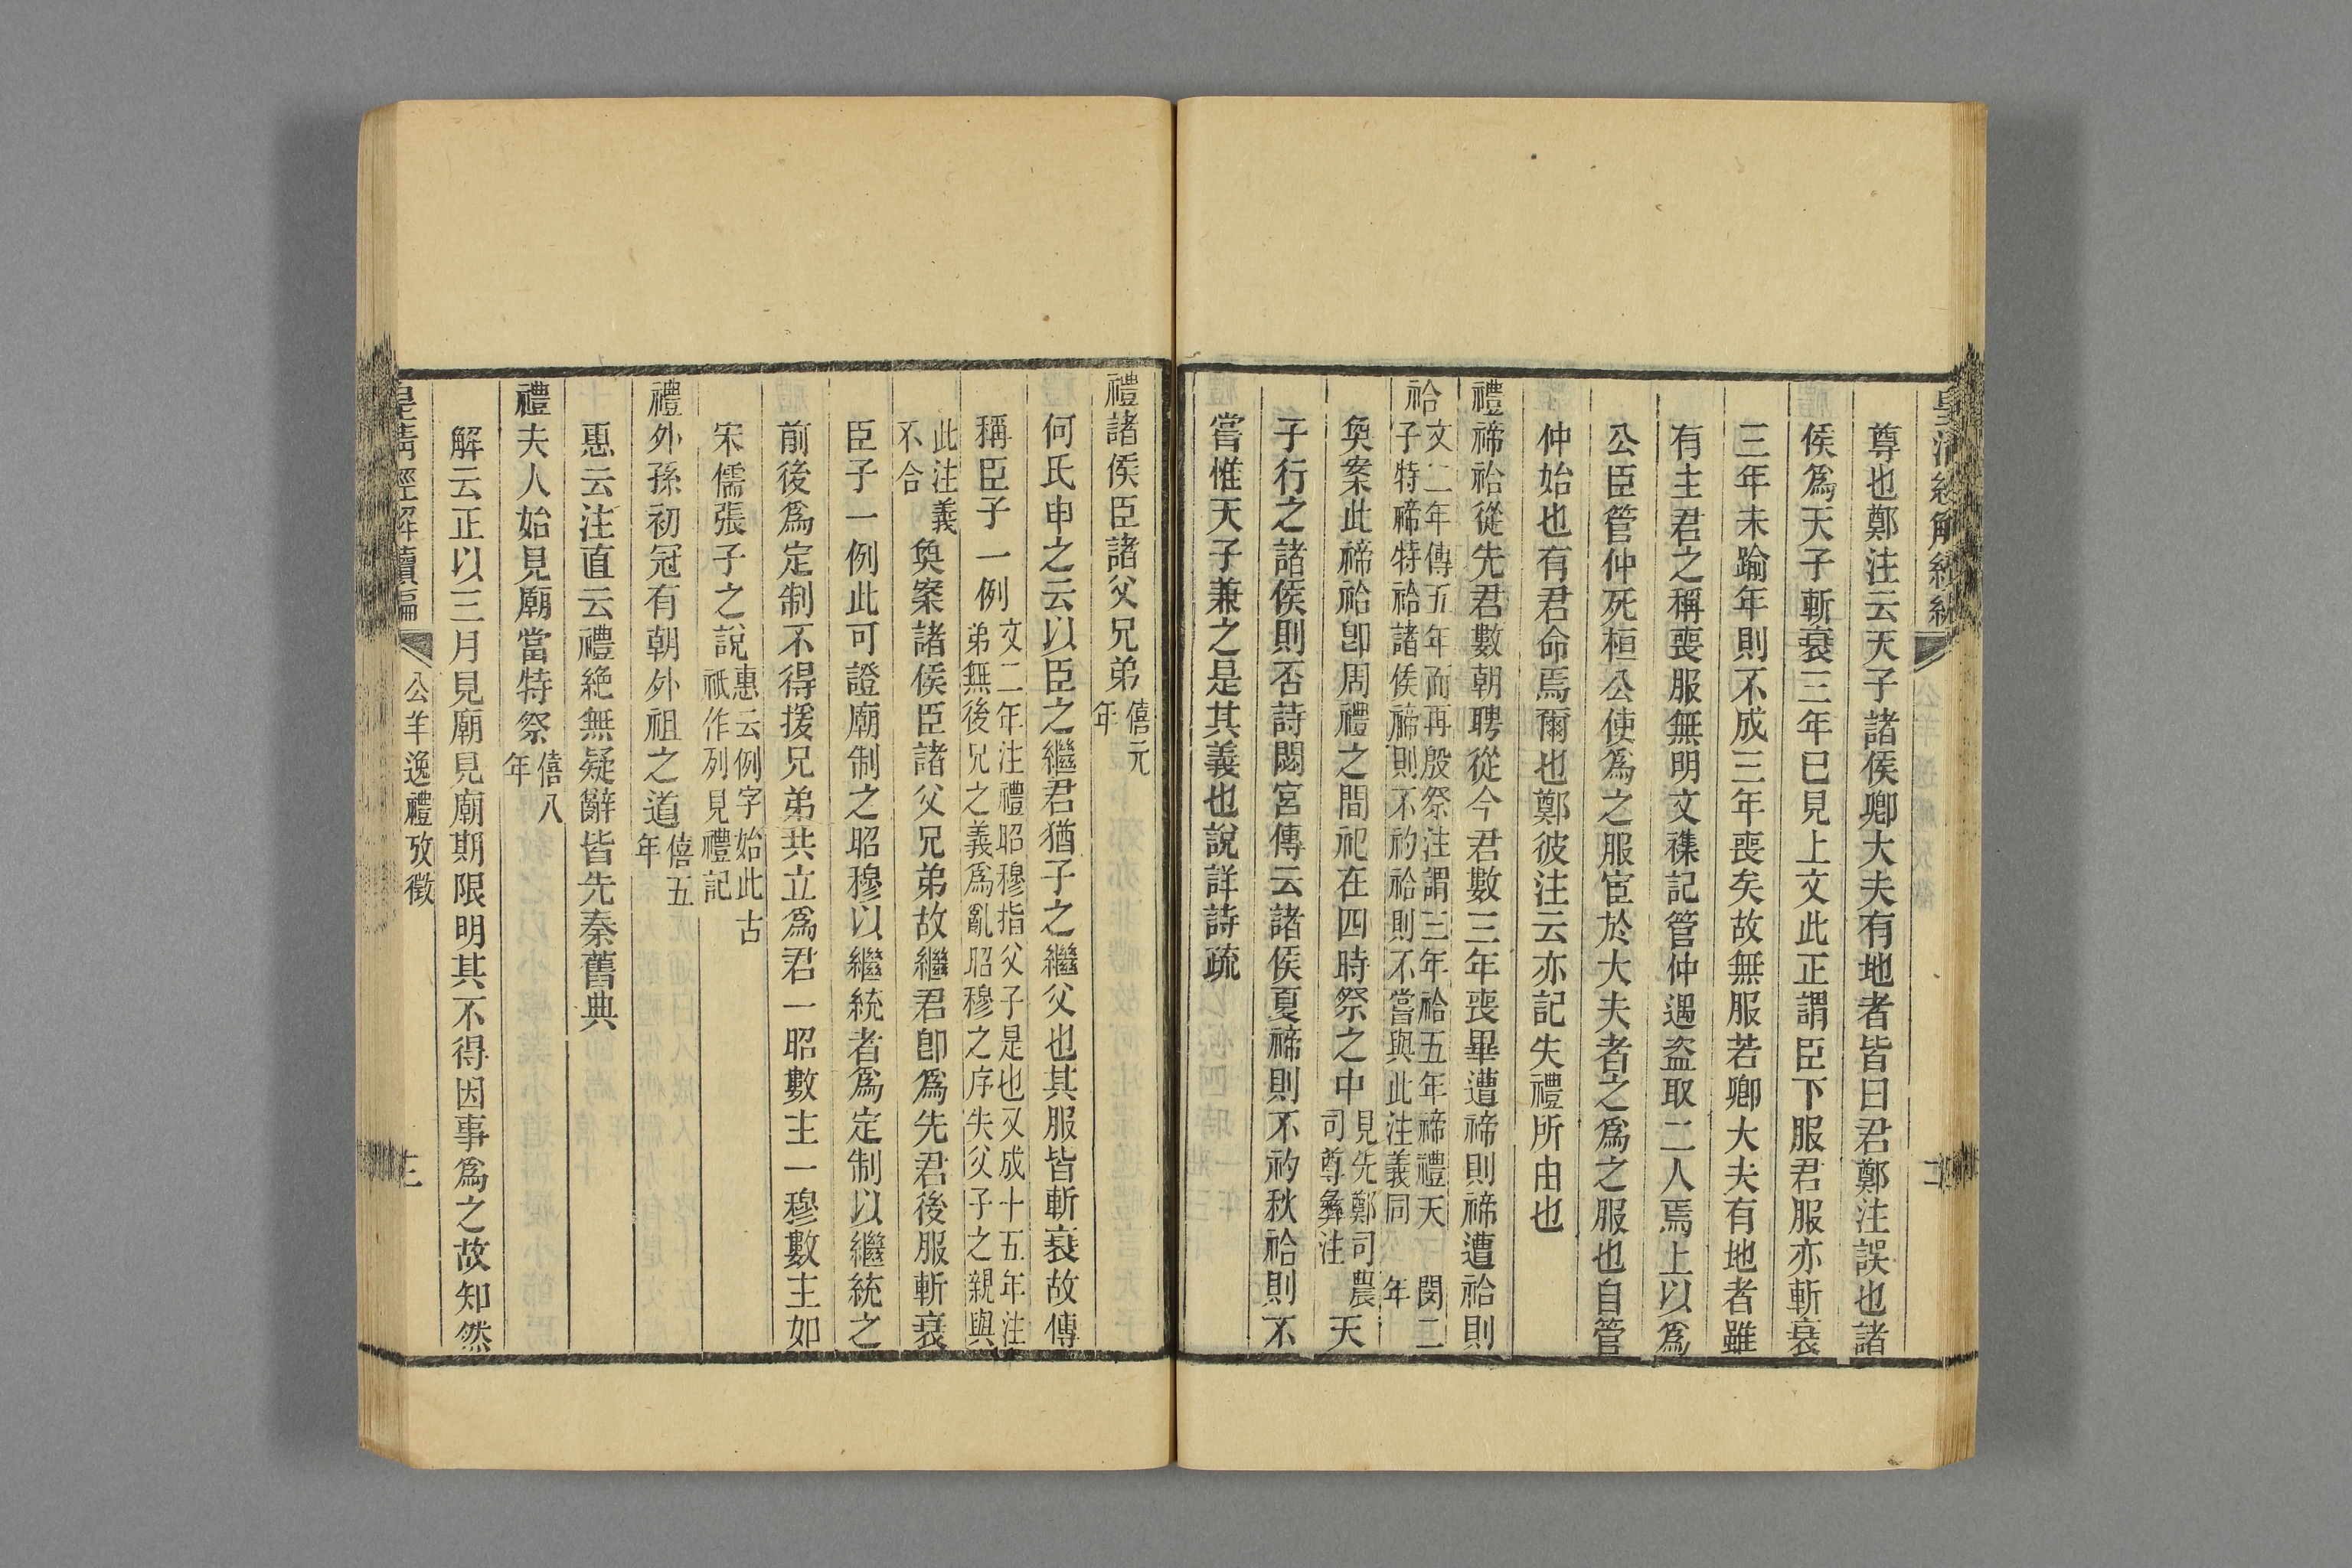 尊也鄭注云天子諸侯卿大夫有地者皆曰君鄭注誤也諸
侯爲天子斬衰三年已見上文此正謂臣下服君服亦斬衰
三年未踰年則不成三年喪矣故無服若卿大夫有地者雖
有主君之稱喪服無明文襍記管仲遇盜取二人焉上以爲
公臣管仲死桓公使爲之服宦於大夫者之爲之服也自管
仲始也有君命焉爾也鄭彼注云亦記失禮所由也
禮禘祫從先君數朝聘從今君數三年喪畢遭禘則禘遭祫則
祫文二年傳五年而再殷祭注謂三年祫五年禘禮天子特禘特祫諸侯禘則不礿祫則不嘗與此注義同 閔二年
奐案此禘祫卽周禮之間祀在四時祭之中見先鄭司農司尊彝注天
子行之諸侯則否詩閟宮傳云諸侯夏禘則不礿秋祫則不
嘗惟天子兼之是其義也說詳詩疏
禮諸侯臣諸父兄弟僖元年
何氏申之云以臣之繼君猶子之繼父也其服皆斬衰故傳
稱臣子一例文二年注禮昭穆指父子是也又成十五年注弟無後兄之義爲亂昭穆之序失父子之親與
此注義不合奐案諸侯臣諸父兄弟故繼君卽爲先君後服斬衰
臣子一例此可證廟制之昭穆以繼統者爲定制以繼統之
前後爲定制不得援兄弟共立爲君一昭數主一穆數主如
宋儒張子之說惠云例字始此古祇作列見禮記
禮外孫初冠有朝外祖之道僖五年
惠云注直云禮絶無疑辭皆先秦舊典
禮夫人始見廟當特祭僖八年
解云正以三月見廟見廟期限明其不得因事爲之故知然
皇清經解續編 公羊逸禮攷徵 三